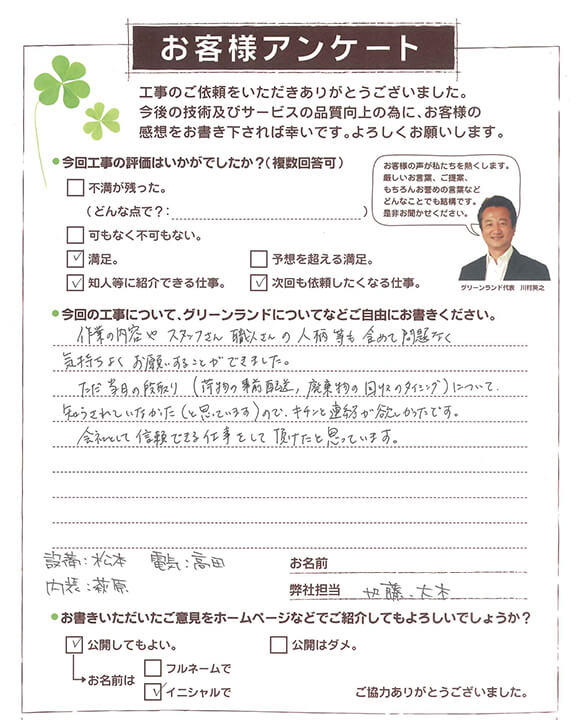 お客様アンケート
工事のご依頼をいただきありがとうございました。
今後の技術及びサービスの品質向上の為に、お客様の
感想をお書き下されば幸いです。よろしくお願いします。
●今回工事の評価はいかがでしたか？(複数回答可)
不満が残った。
(どんな点で？: )
可もなく不可もない。
✓満足。 予想を超える満足。
✓知人等に紹介できる仕事。 ✓次回も依頼したくなる仕事。
お客様の声が私たちを熱くします。
厳しいお言葉、ご提案、
もちろんお誉めの言葉など
どんなことでも結構です。
是非お聞かせください。
グリーンランド代表 川村英之
●今回の工事について、グリーンランドについてなどご自由にお書きください。
作業の内容や スタッフさん 職人さんの 人柄等も 含めて 問題なく
気持ちよく お願いすることができました。
ただ 当日の段取り (荷物の事前配送, 廃棄物の回収のタイミング)について、
知らされていなかった(と思っています)ので、キチンと連絡が欲しかったです。
会社として 信頼できる仕事をして 頂けたと思っています。
設備:松本 電気:高田
内装:萩原
お名前
弊社担当 加藤、大木
●お書きいただいたご意見をホームページなどでご紹介してもよろしいでしょうか？
✓公開してもよい。 公開はダメ。
お名前は フルネームで
✓イニシャルで
ご協力ありがとうございました。